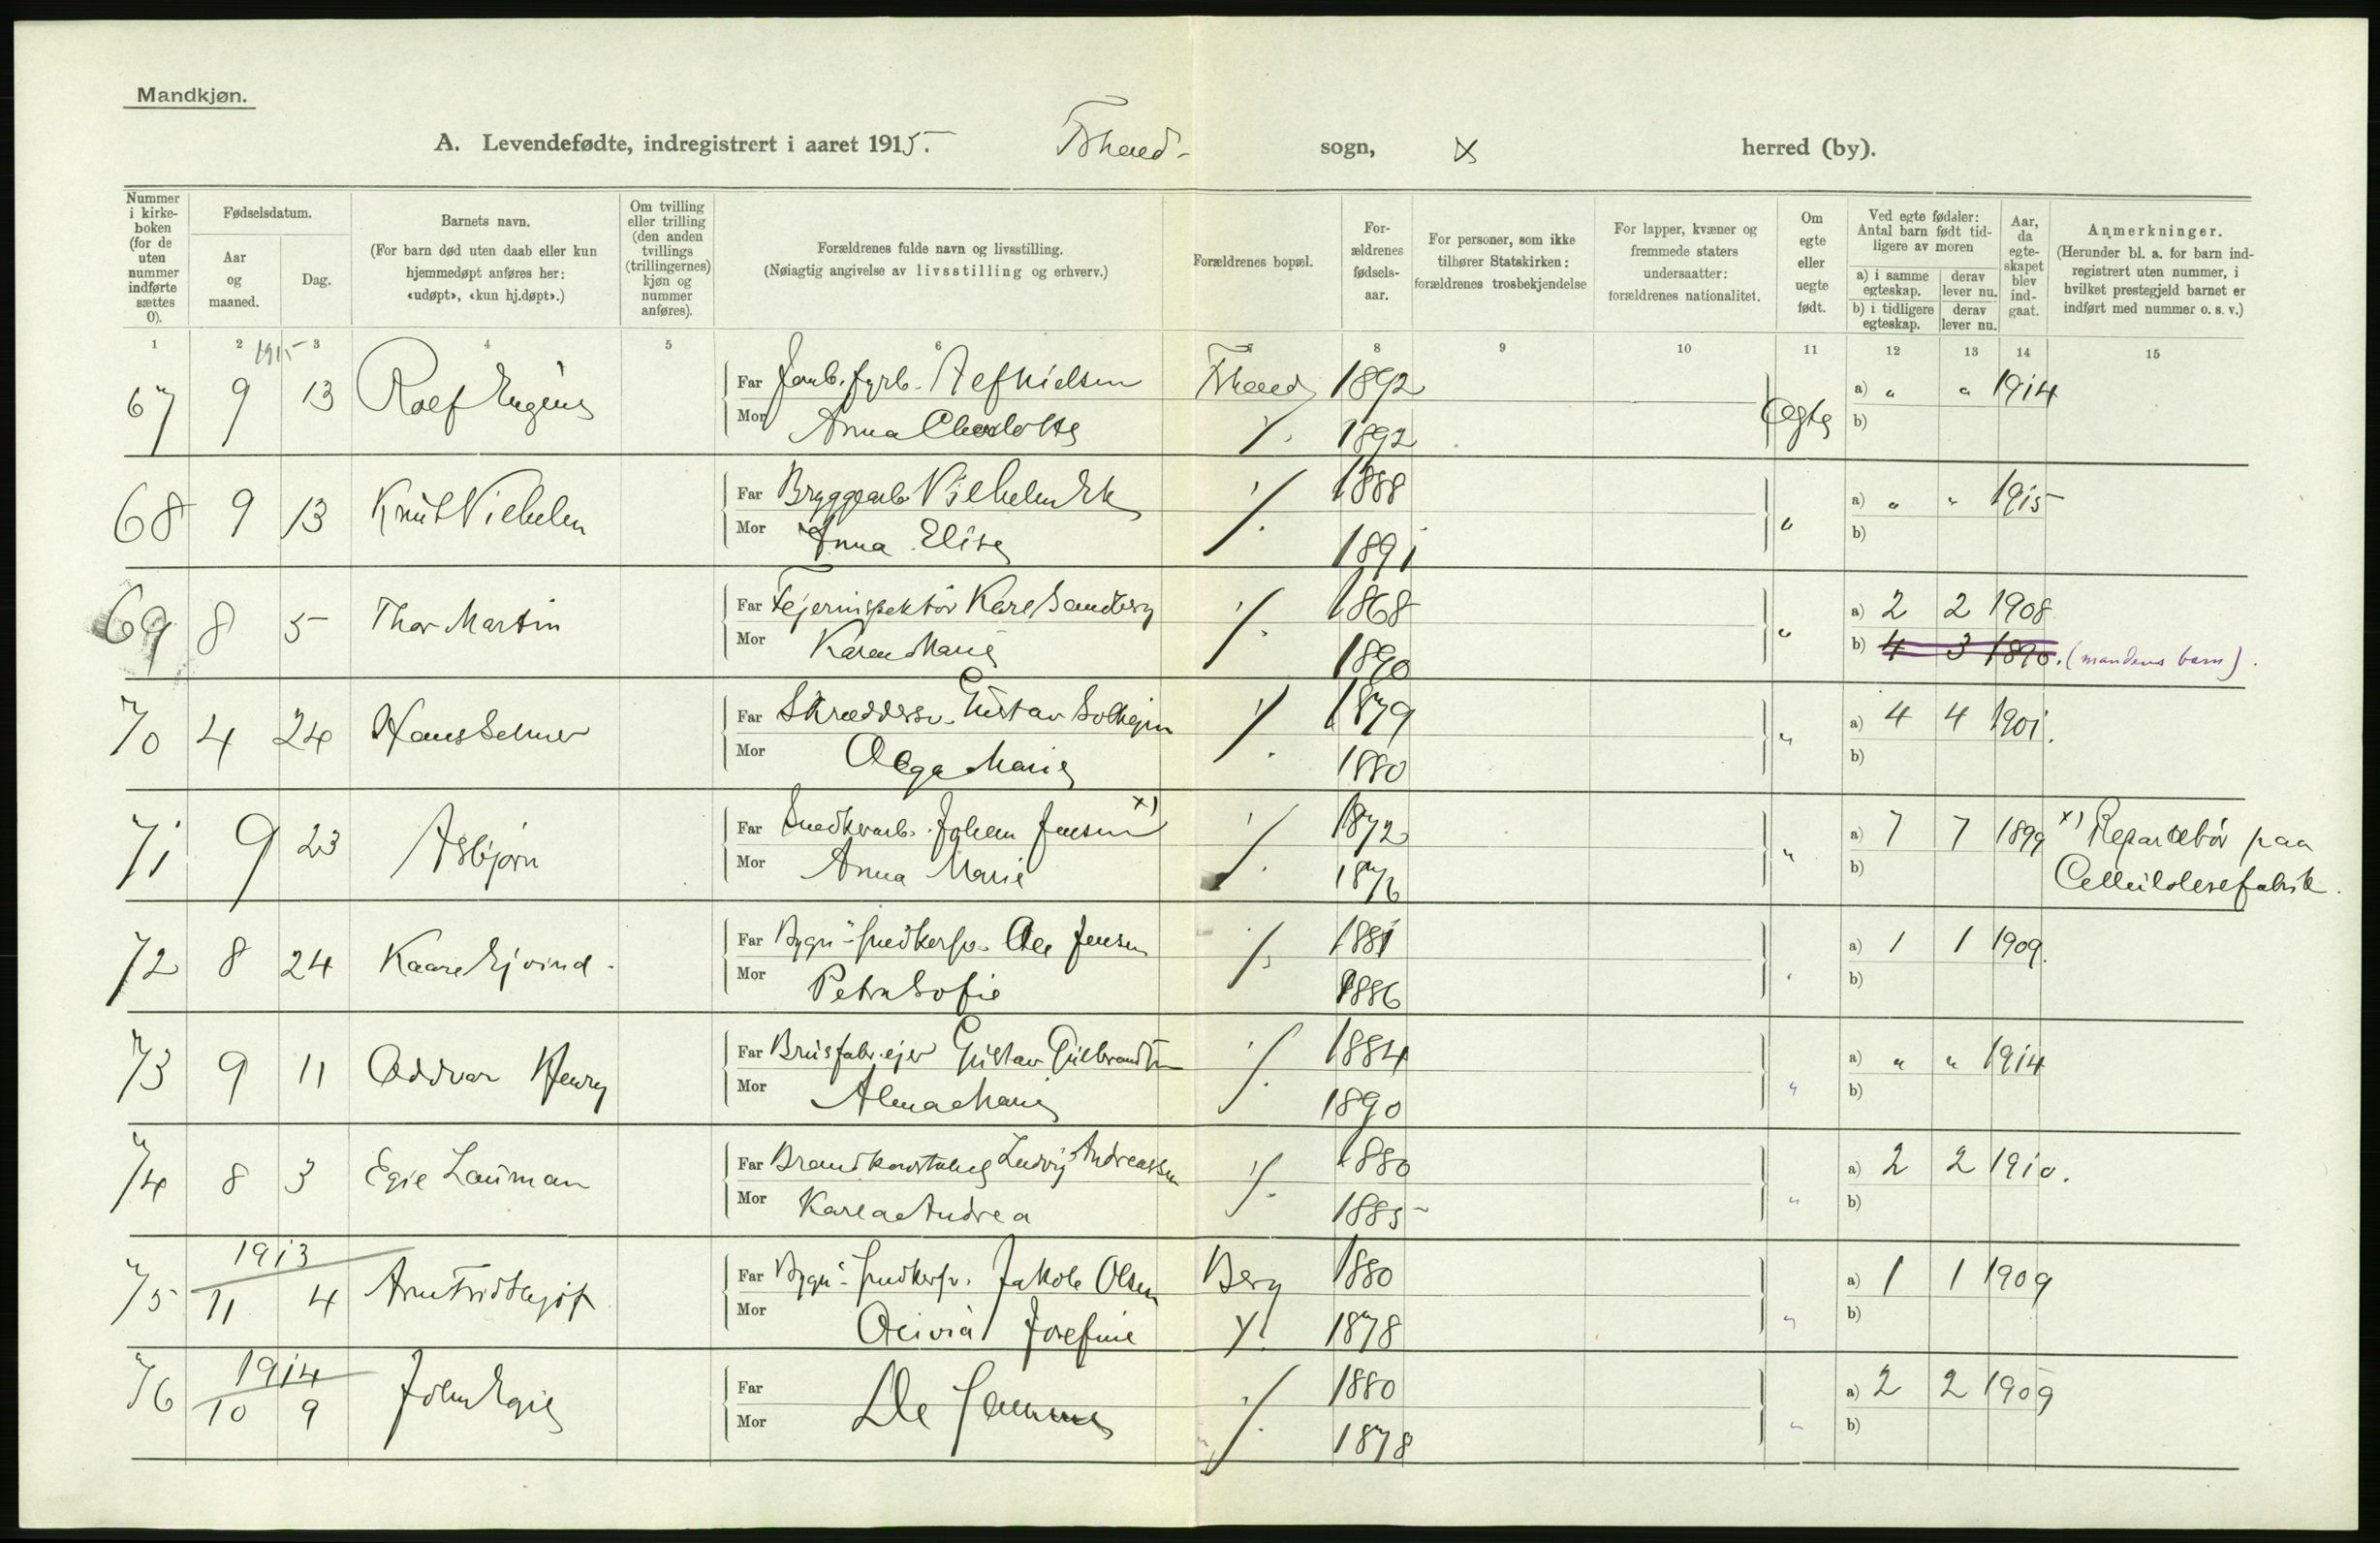 Mandkjøn.
A. Levendefødte, indregistrert i aaret 1915. Fhald sogn, herred (by).
Nummer i kirke-boken (for de uten nummer indførte sættes 0).
Fødselsdatum.
Aar og maaned.
Dag.
Barnets navn.
(For barn død uten daab eller kun hjemmedøpt anføres her: «udøpt», «kun hj.døpt».)
Om tvilling eller trilling (den anden tvillings (trillingernes) kjøn og nummer anføres).
Forældrenes fulde navn og livsstilling.
(Nøiagtig angivelse av livsstilling og erhverv.)
Forældrenes bopæl.
For-ældrenes fødsels-aar.
For personer, som ikke tilhører Statskirken: forældrenes trosbekjendelse
For lapper, kvæner og fremmede staters undersaatter: forældrenes nationalitet.
Om egte eller uegte født.
Ved egte fødsler: Antal barn født tid-ligere av moren
a) i samme egteskap. derav lever nu.
b) i tidligere egteskap. derav lever nu.
Aar, da egte-skapet blev ind-gaat.
Anmerkninger.
(Herunder bl. a. for barn ind-registrert uten nummer, i hvilket prestegjeld barnet er indført med nummer o. s. v.)
1 2 3 4 5 6 7 8 9 10 11 12 13 14 15
1915
67 9 13 Rolf Far Alf Nielsen Fhald 1892 Egte a) " " 1914
Mor Anna Charlotte 1892 b)
68 9 13 Knut Vilhelm Far Bryggearb. Vilhelm Ek 1888 " a) " " 1915
Mor Anna Elise 1891 b)
69 8 5 Thor Martin Far Feierinspektør Karl Sandberg 1868 " a) 2 2 1908
Mor Karen Marie 1890 b) 4 3 1890. (mandens barn).
70 4 24 Hans Selmer Far Skræddersv. Gustav 1879 " a) 4 4 1901.
Mor Olga Marie 1880 b)
71 9 23 Asbjørn Far Snedkerarb. Johan Jensen x) 1872 " a) 7 7 1899 x) Reparatør paa
Mor Anna Marie 1876 b) Cellulosefabrik.
72 8 24 Kaare Ejvind. Far Bygn.-snedkersv. Ole Jensen 1881 a) 1 1 1909.
Mor Petra Sofie 1886 b)
73 9 11 Oddvar Henry Far Brusfabr.ejer Gustav Gulbrandsen 1884 " a) " " 1914
Mor Alma Marie 1890 b)
74 8 3 Egil Lauman Far Brandkonstabel Ludvig Andreassen 1880 " a) 2 2 1910.
Mor Karla Andrea 1885 b)
1913
75 11 4 Far Bygn.-snedkersv. Jakob Olsen Berg 1880 " a) 1 1 1909
Mor Olivia Josefine 1878 b)
1914
76 10 9 John Egil Far De samme 1880 " a) 2 2 1909
Mor 1878 b)